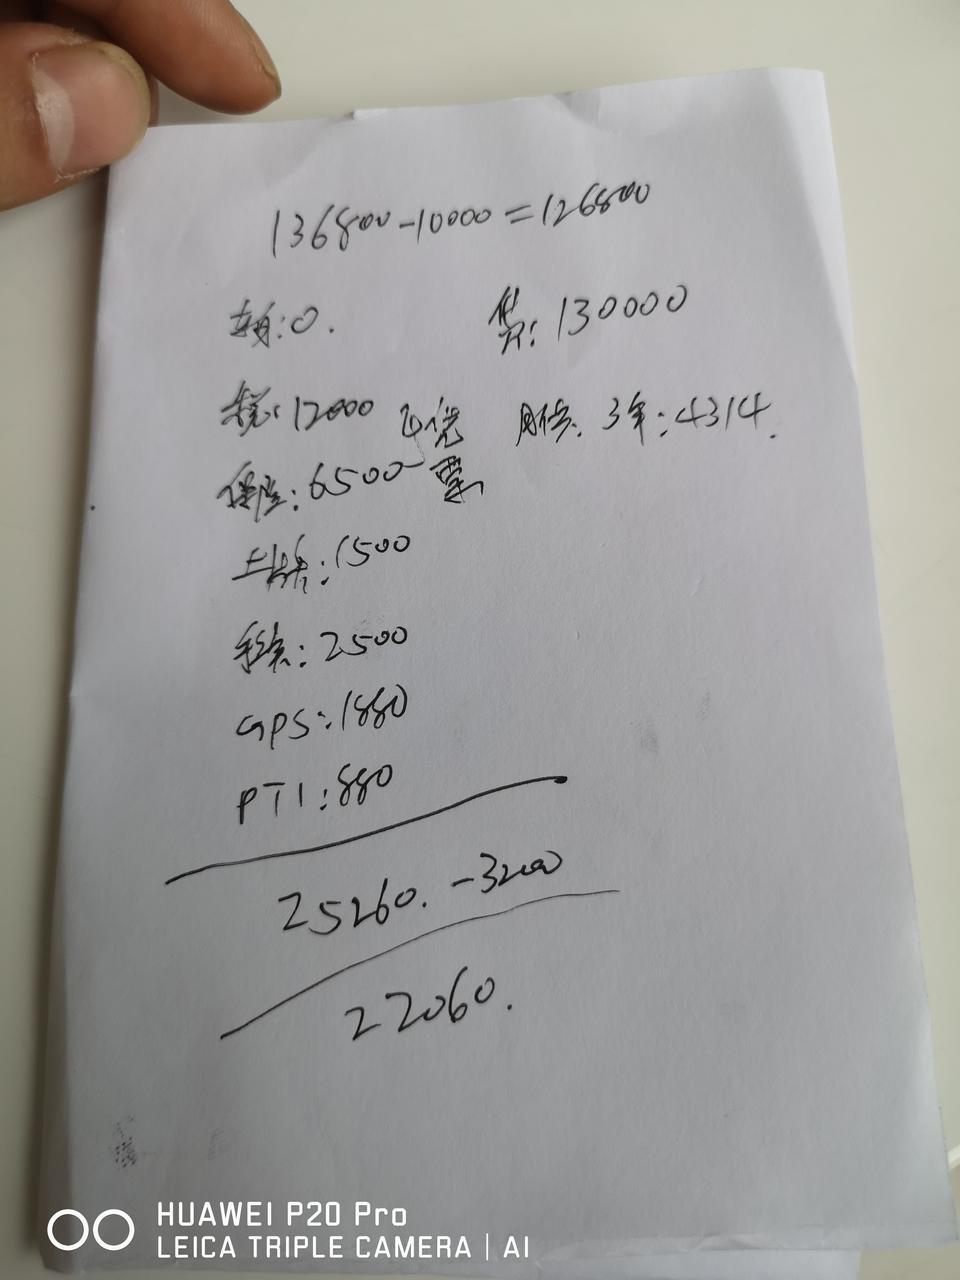 136800-10000=126800
首:0. 贷:130000
税:12000 月供: 3年:4314.
保险:6500
票
上牌:1500
手续:2500
GPS:1880
PTI:880
25260. -3200
22060.
HUAWEI P20 Pro
LEICA TRIPLE CAMERA | AI